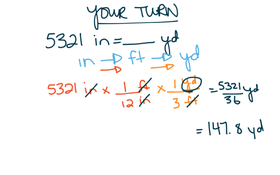 YOUR TURN
5321 in = ___ yd
in → ft → yd
5321 in × 1 ft / 12 in × 1 yd / 3 ft = 5321 / 36 yd
= 147.8 yd